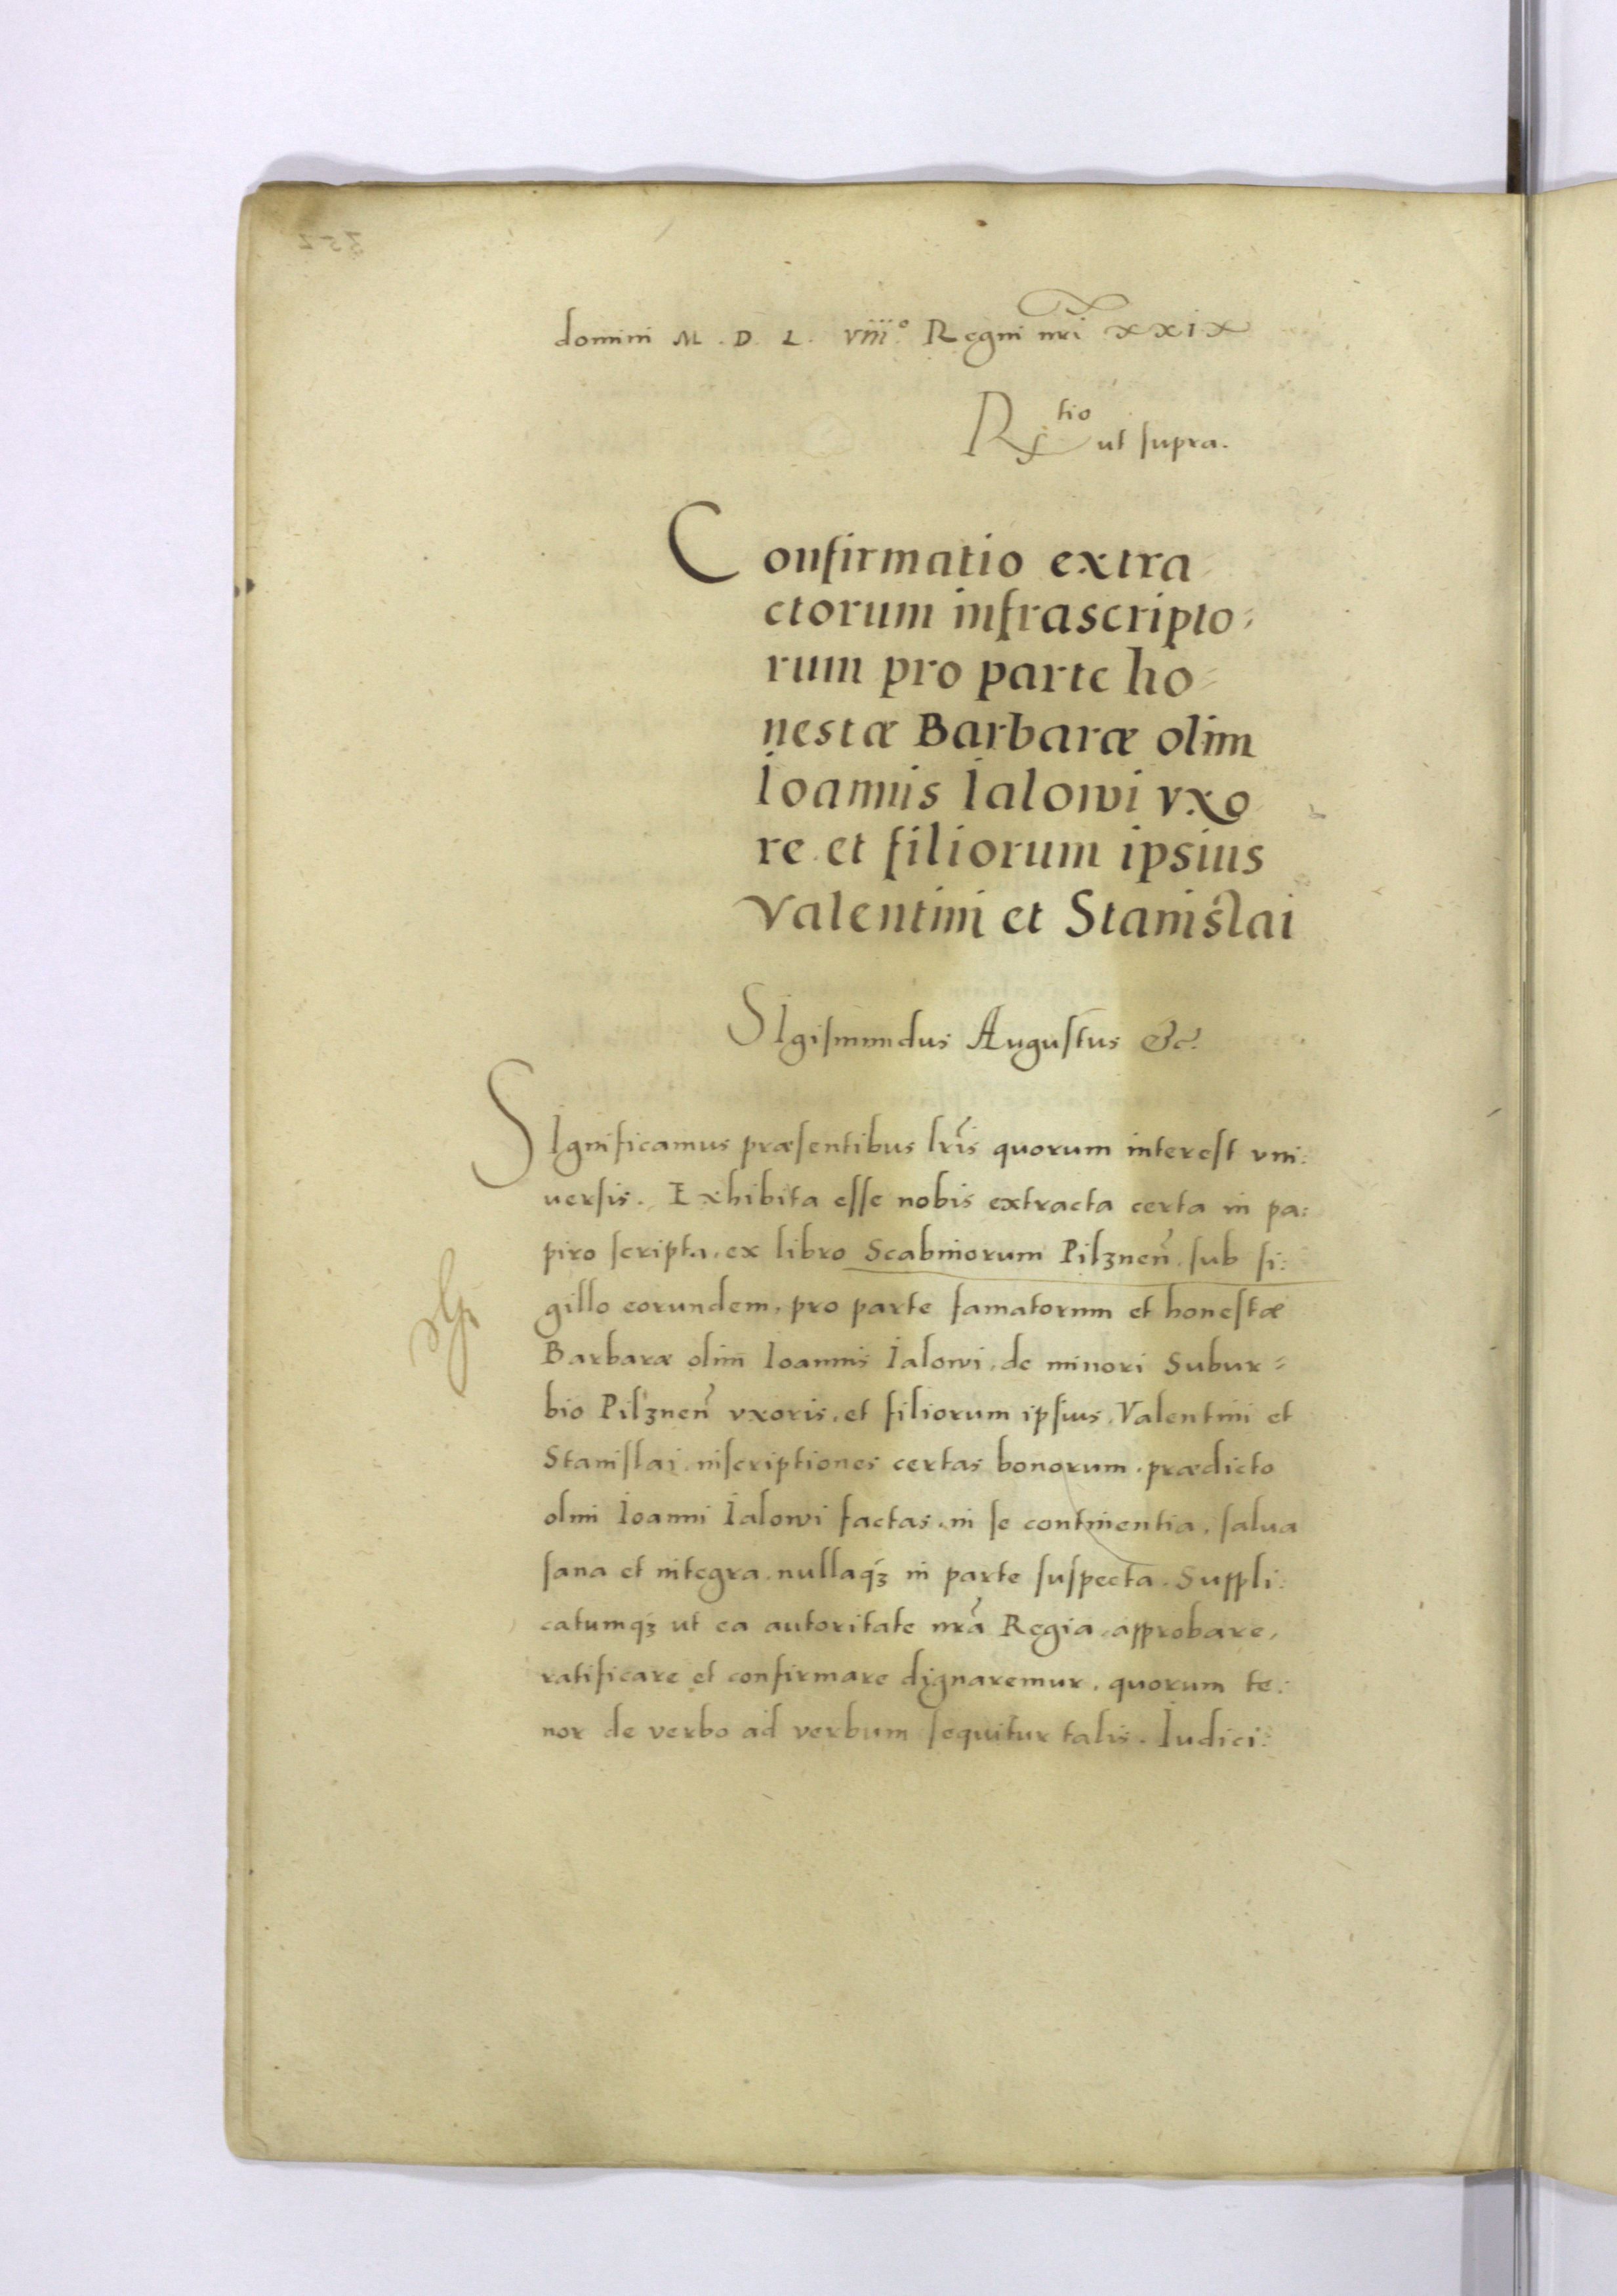 domini M. D. L. viii.º Regni nri xxix
R.tio ut supra.
Confirmatio extra
ctorum infrascripto=
rum pro parte ho=
nestæ Barbaræ olim
Ioannis Ialowi vxo
re et filiorum ipsius
Valentini et Stanislai
SIgismundus Augustus &c.
SIgnificamus præsentibus lris quorum interest vni:
uersis. Exhibita esse nobis extracta certa in pa:
piro scripta, ex libro Scabinorum Pilznen̄ sub si:
gillo eorundem, pro parte famatorum et honestæ
Barbaræ olim Ioannis Ialowi, de minori Subur=
bio Pilznen̄ vxoris, et filiorum ipsius, Valentini et
Stanislai, inscriptiones certas bonorum, prædicto
olim Ioanni Ialowi factas, in se continentia, salua
sana et integra, nullaqꝫ in parte suspecta. Suppli:
catumqꝫ ut ea autoritate nrā Regia, approbare,
ratificare et confirmare dignaremur, quorum te:
nor de verbo ad verbum sequitur talis. Iudici: